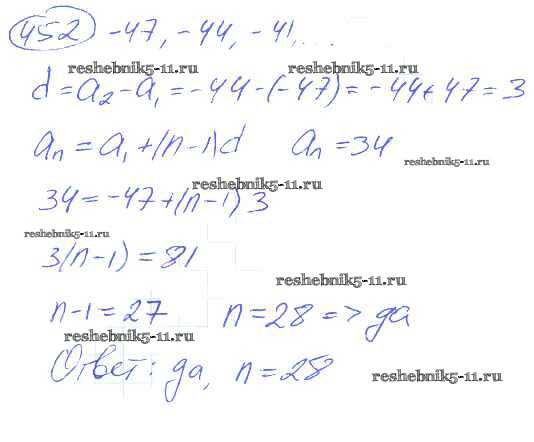 452 -47, -44, -41, ...
reshebnik5-11.ru reshebnik5-11.ru
d = a₂ - a₁ = -44 - (-47) = -44 + 47 = 3
aₙ = a₁ + (n-1)d aₙ = 34
reshebnik5-11.ru
reshebnik5-11.ru
34 = -47 + (n-1) 3
reshebnik5-11.ru
3(n-1) = 81
reshebnik5-11.ru
n-1 = 27 n = 28 => да
reshebnik5-11.ru
Ответ: да, n = 28
reshebnik5-11.ru